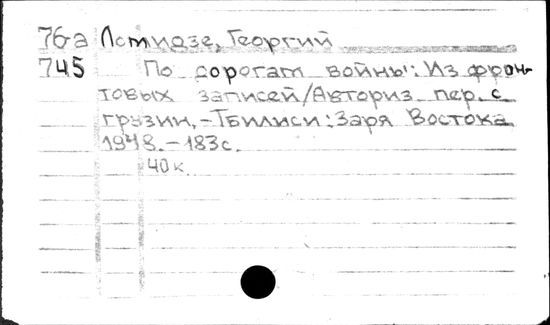 76-а Ломидзе, Георгий
745 По дорогам войны: Из фрон-
товых записей/Авториз. пер. с
грузин.-Тбилиси: Заря Востока
1948.-183с.
40к.